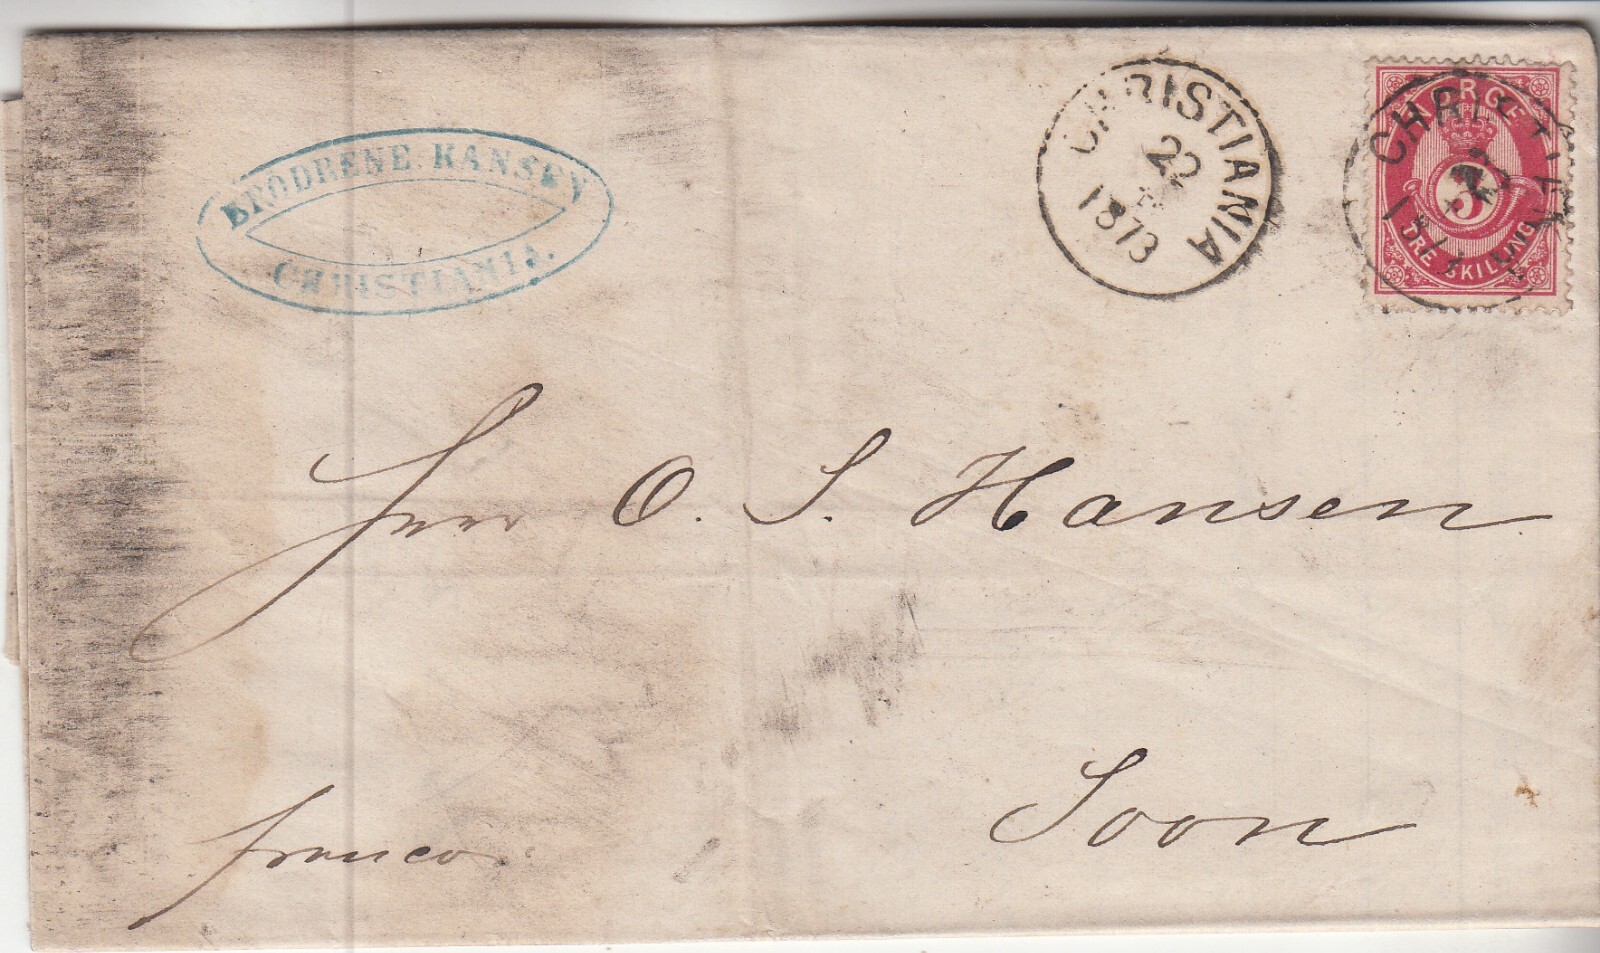 BRØDRENE HANSEN
CHRISTIANIA.
CHRISTIANIA
22
1873
NORGE
3
TRE SKILLING
CHRISTIANIA
Herr O. S. Hansen
Soon
franco